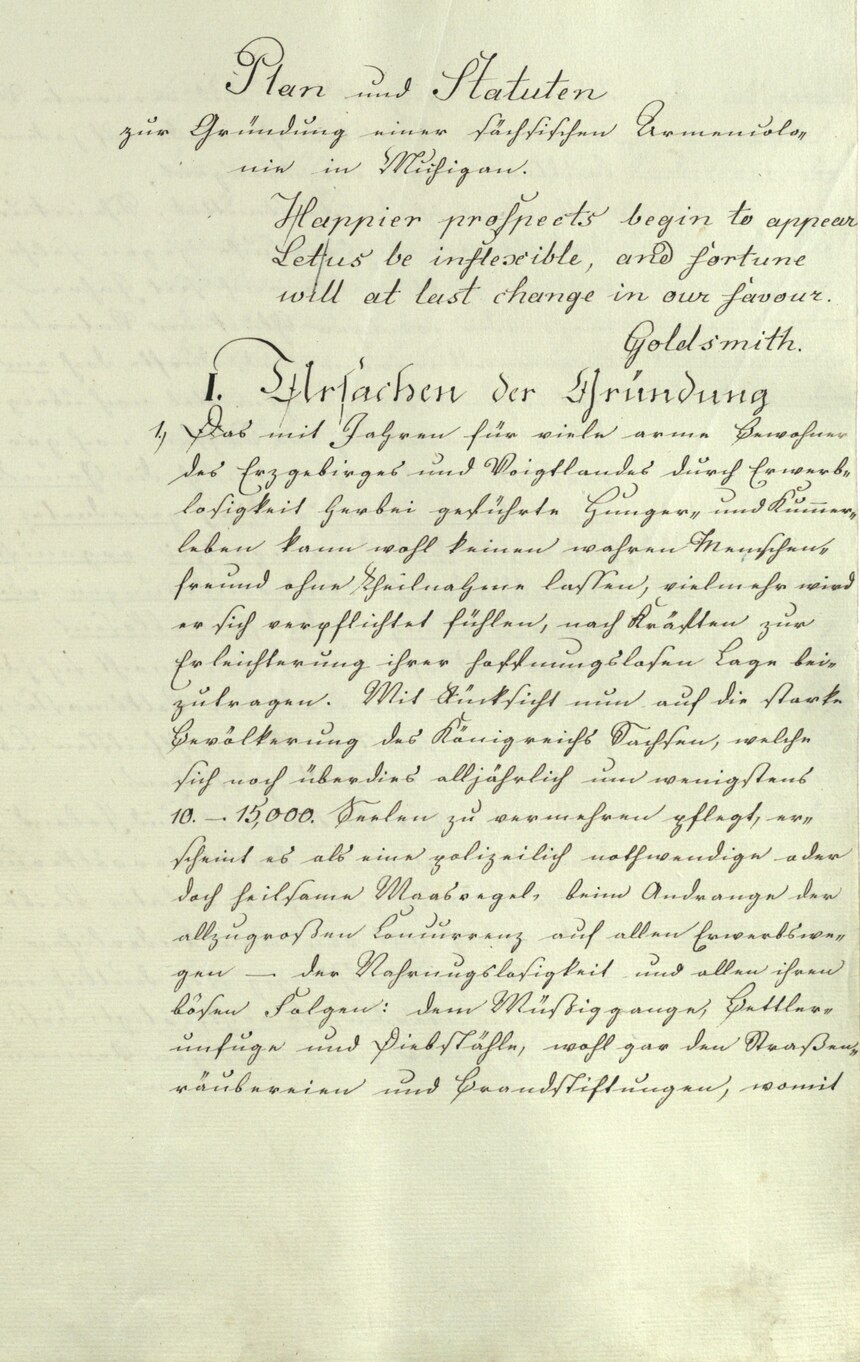 Plan und Statuten
zur Gründung einer sächsischen Armencolo„
nie in Michigan.
Happier prospects begin to appear
Let us be inflexible, and fortune
will at last change in our favour.
Goldsmith.
I. Ursachen der Gründung
1., Das mit Jahren für viele arme Bewohner
des Erzgebirges und Voigtlandes durch Erwerb„
losigkeit herbei geführte Hunger„ und Kum̅er„
leben kann wohl keinen wahren Menschen„
freund ohne Theilnahme lassen, vielmehr wird
er sich verpflichtet fühlen, nach Kräften zur
Erleichterung ihrer hoffnungslosen Lage bei„
zutragen. Mit Rücksicht nun auf die starke
Bevölkerung des Königreichs Sachsen, welche
sich noch überdies alljährlich um wenigstens
10. – 15,000. Seelen zu vermehren pflegt, er„
scheint es als eine polizeilich nothwendige oder
doch heilsame Maasregel, beim Andrange der
allzugroßen Concurrenz auf allen Erwerbswe„
gen — der Nahrungslosigkeit und allen ihren
bösen Folgen: dem Müßiggange, Bettler„
unfuge und Diebstähle, wohl gar den Straßen„
räubereien und Brandstiftungen, womit